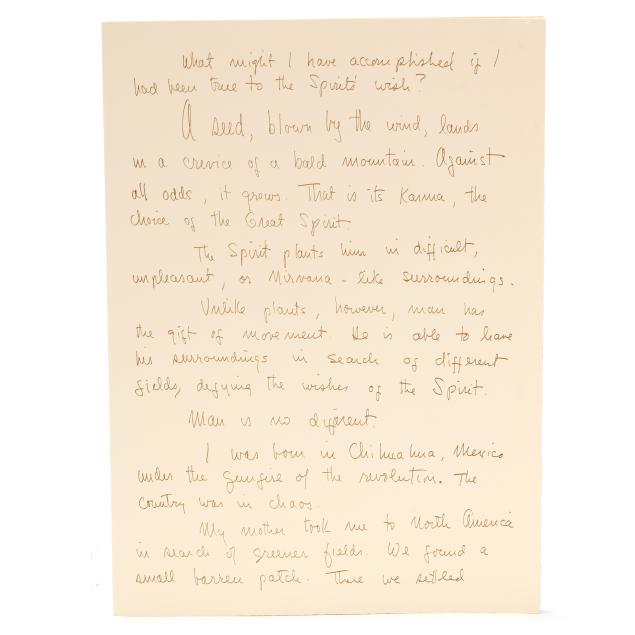 What might I have accomplished if I
had been true to the Spirits' wish?
A seed, blown by the wind, lands
in a crevice of a bald mountain. Against
all odds, it grows. That is its Karma, the
choice of the Great Spirit.
The Spirit plants him in difficult,
unpleasant, or Nirvana-like surroundings.
Unlike plants, however, man has
the gift of movement. He is able to leave
his surroundings in search of different
fields, defying the wishes of the Spirit.
Man is no different.
I was born in Chihuahua, Mexico
under the gunfire of the revolution. The
country was in chaos.
My mother took me to North America
in search of greener fields. We found a
small barren patch. There we settled